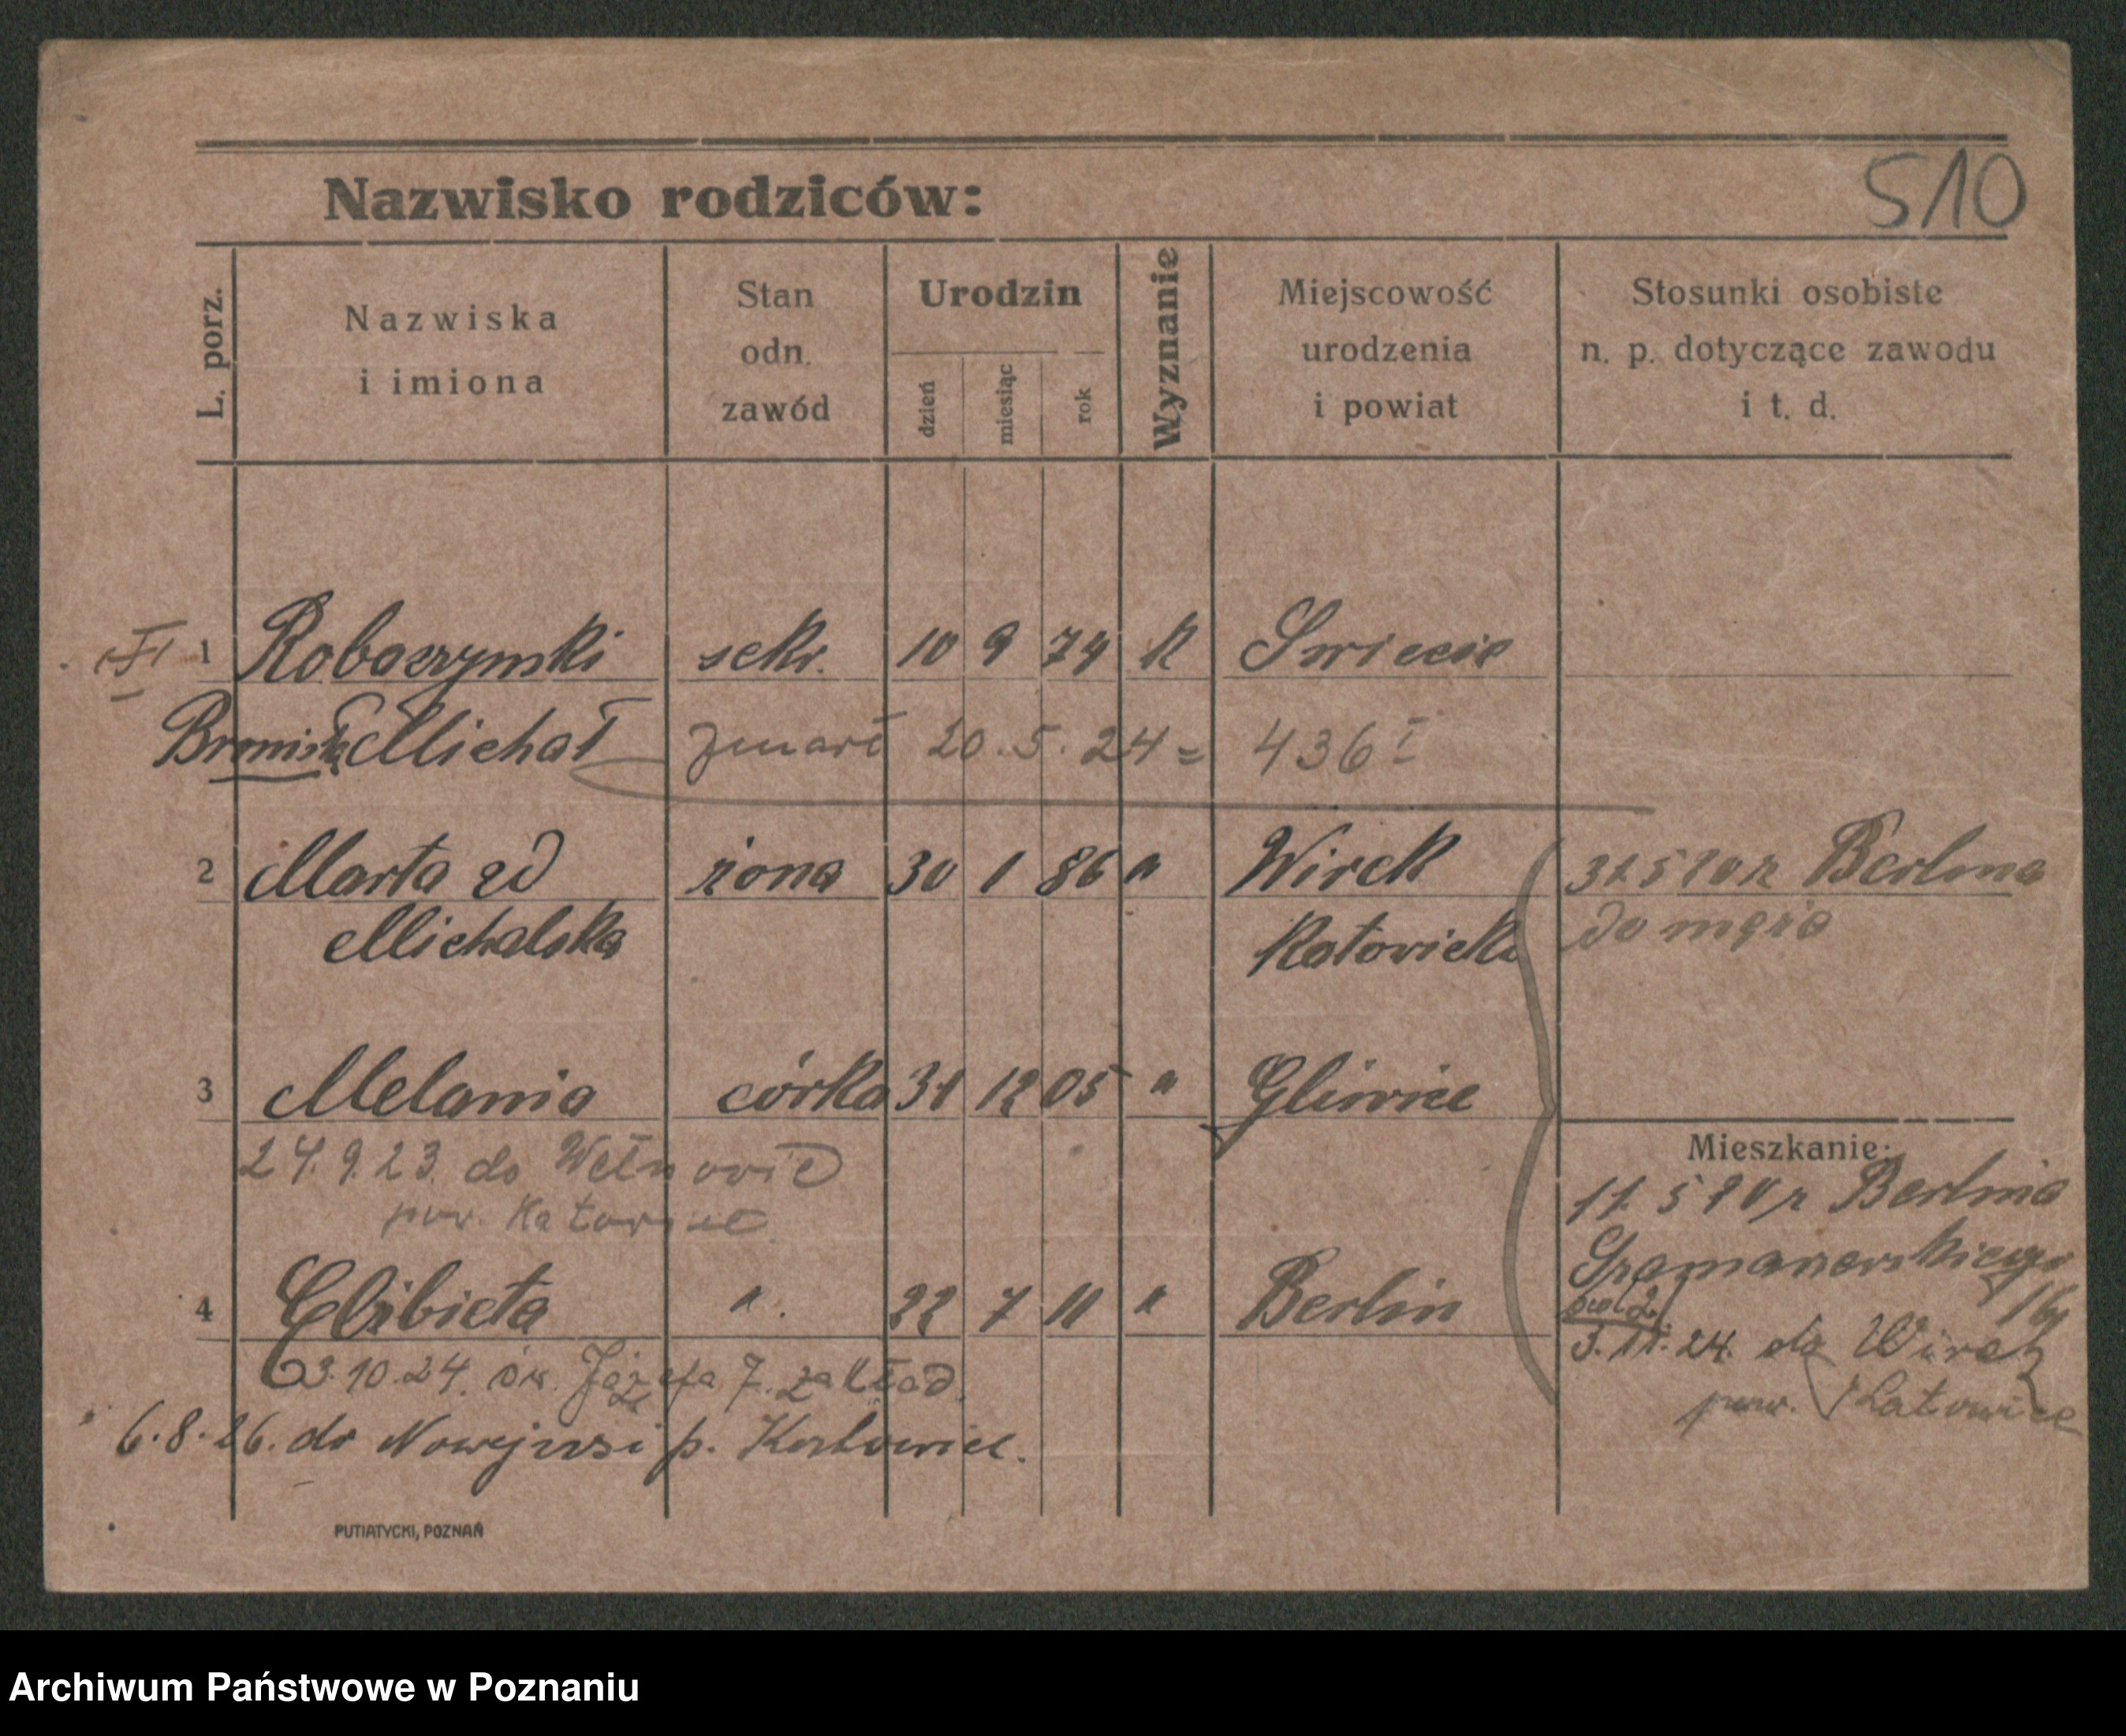 510
Nazwisko rodziców:
L. porz.
Nazwiska
i imiona
Stan
odn.
zawód
Urodzin
dzień
miesiąc
rok
Wyznanie
Miejscowość
urodzenia
i powiat
Stosunki osobiste
n. p. dotyczące zawodu
i t. d.
1 Robaszynski sekr. 10 9 74 k Swiecie
Michał zmarł 20.5.24 = 436 I
2 Marta zd żona 30 1 86 " Wirek
Michalska Katowicka
31.5 20 r Berlina
do męża
3 Melania córka 31 12 05 " Gliwice
24.9.23. do Wełnowic
pow. Katowice
Mieszkanie:
11. 5 20 r Berlina
16
4 Elżbieta " 22 7 11 " Berlin
3.10.24. św. Józefa 7. zakład.
3.11.24. do Wirek
pow. Katowice
6.8.26. do Nowejwsi p. Katowice.
PUTIATYCKI, POZNAŃ
Archiwum Państwowe w Poznaniu